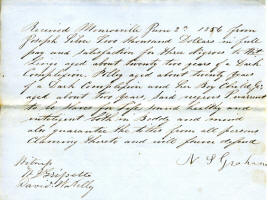 Received Monroeville June 2nd 1856 from
Joseph Two thousand Dollars in full
pay and satisfaction for three negroes to Wit
aged about twenty two years of a Dark
Complexion. Polly aged about twenty years
of a Dark Complexion and her Boy Child
aged about two years, Said negroes I warrant
to be Slaves for life sound healthy and
intelligent both in Body and mind
also guarantee the titles from all persons
claiming thereto and will forever defend
N. S. Graham
Witness
David